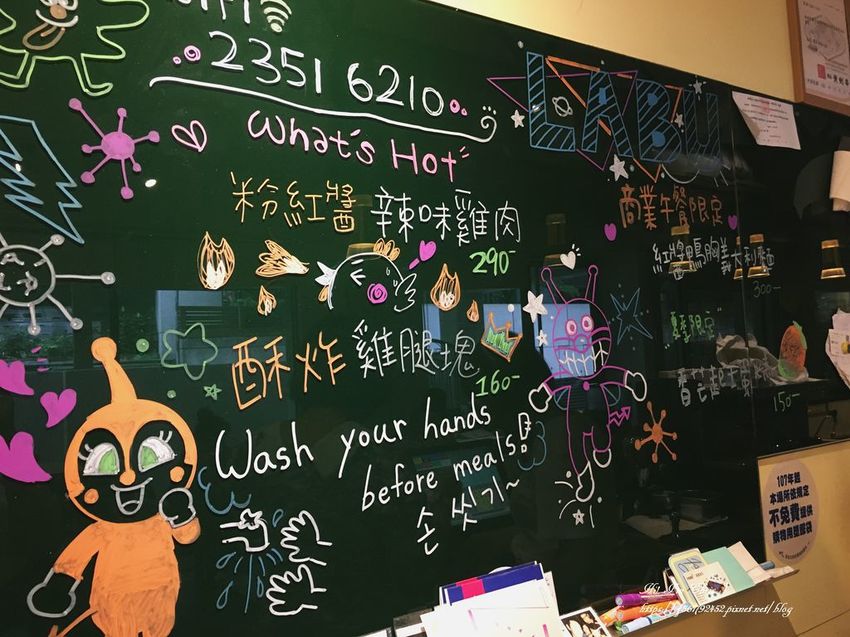 WiFi
2351 6210
LABU
What's Hot
粉紅醬 辣味雞肉
290-
酥炸 雞腿塊
160-
商業午餐限定
紅醬鴨胸義大利麵
300-
夏季限定
150-
Wash your hands
before meals!
손 씻기~
107年起
本場所依規定
不免費提供
購物用塑膠袋